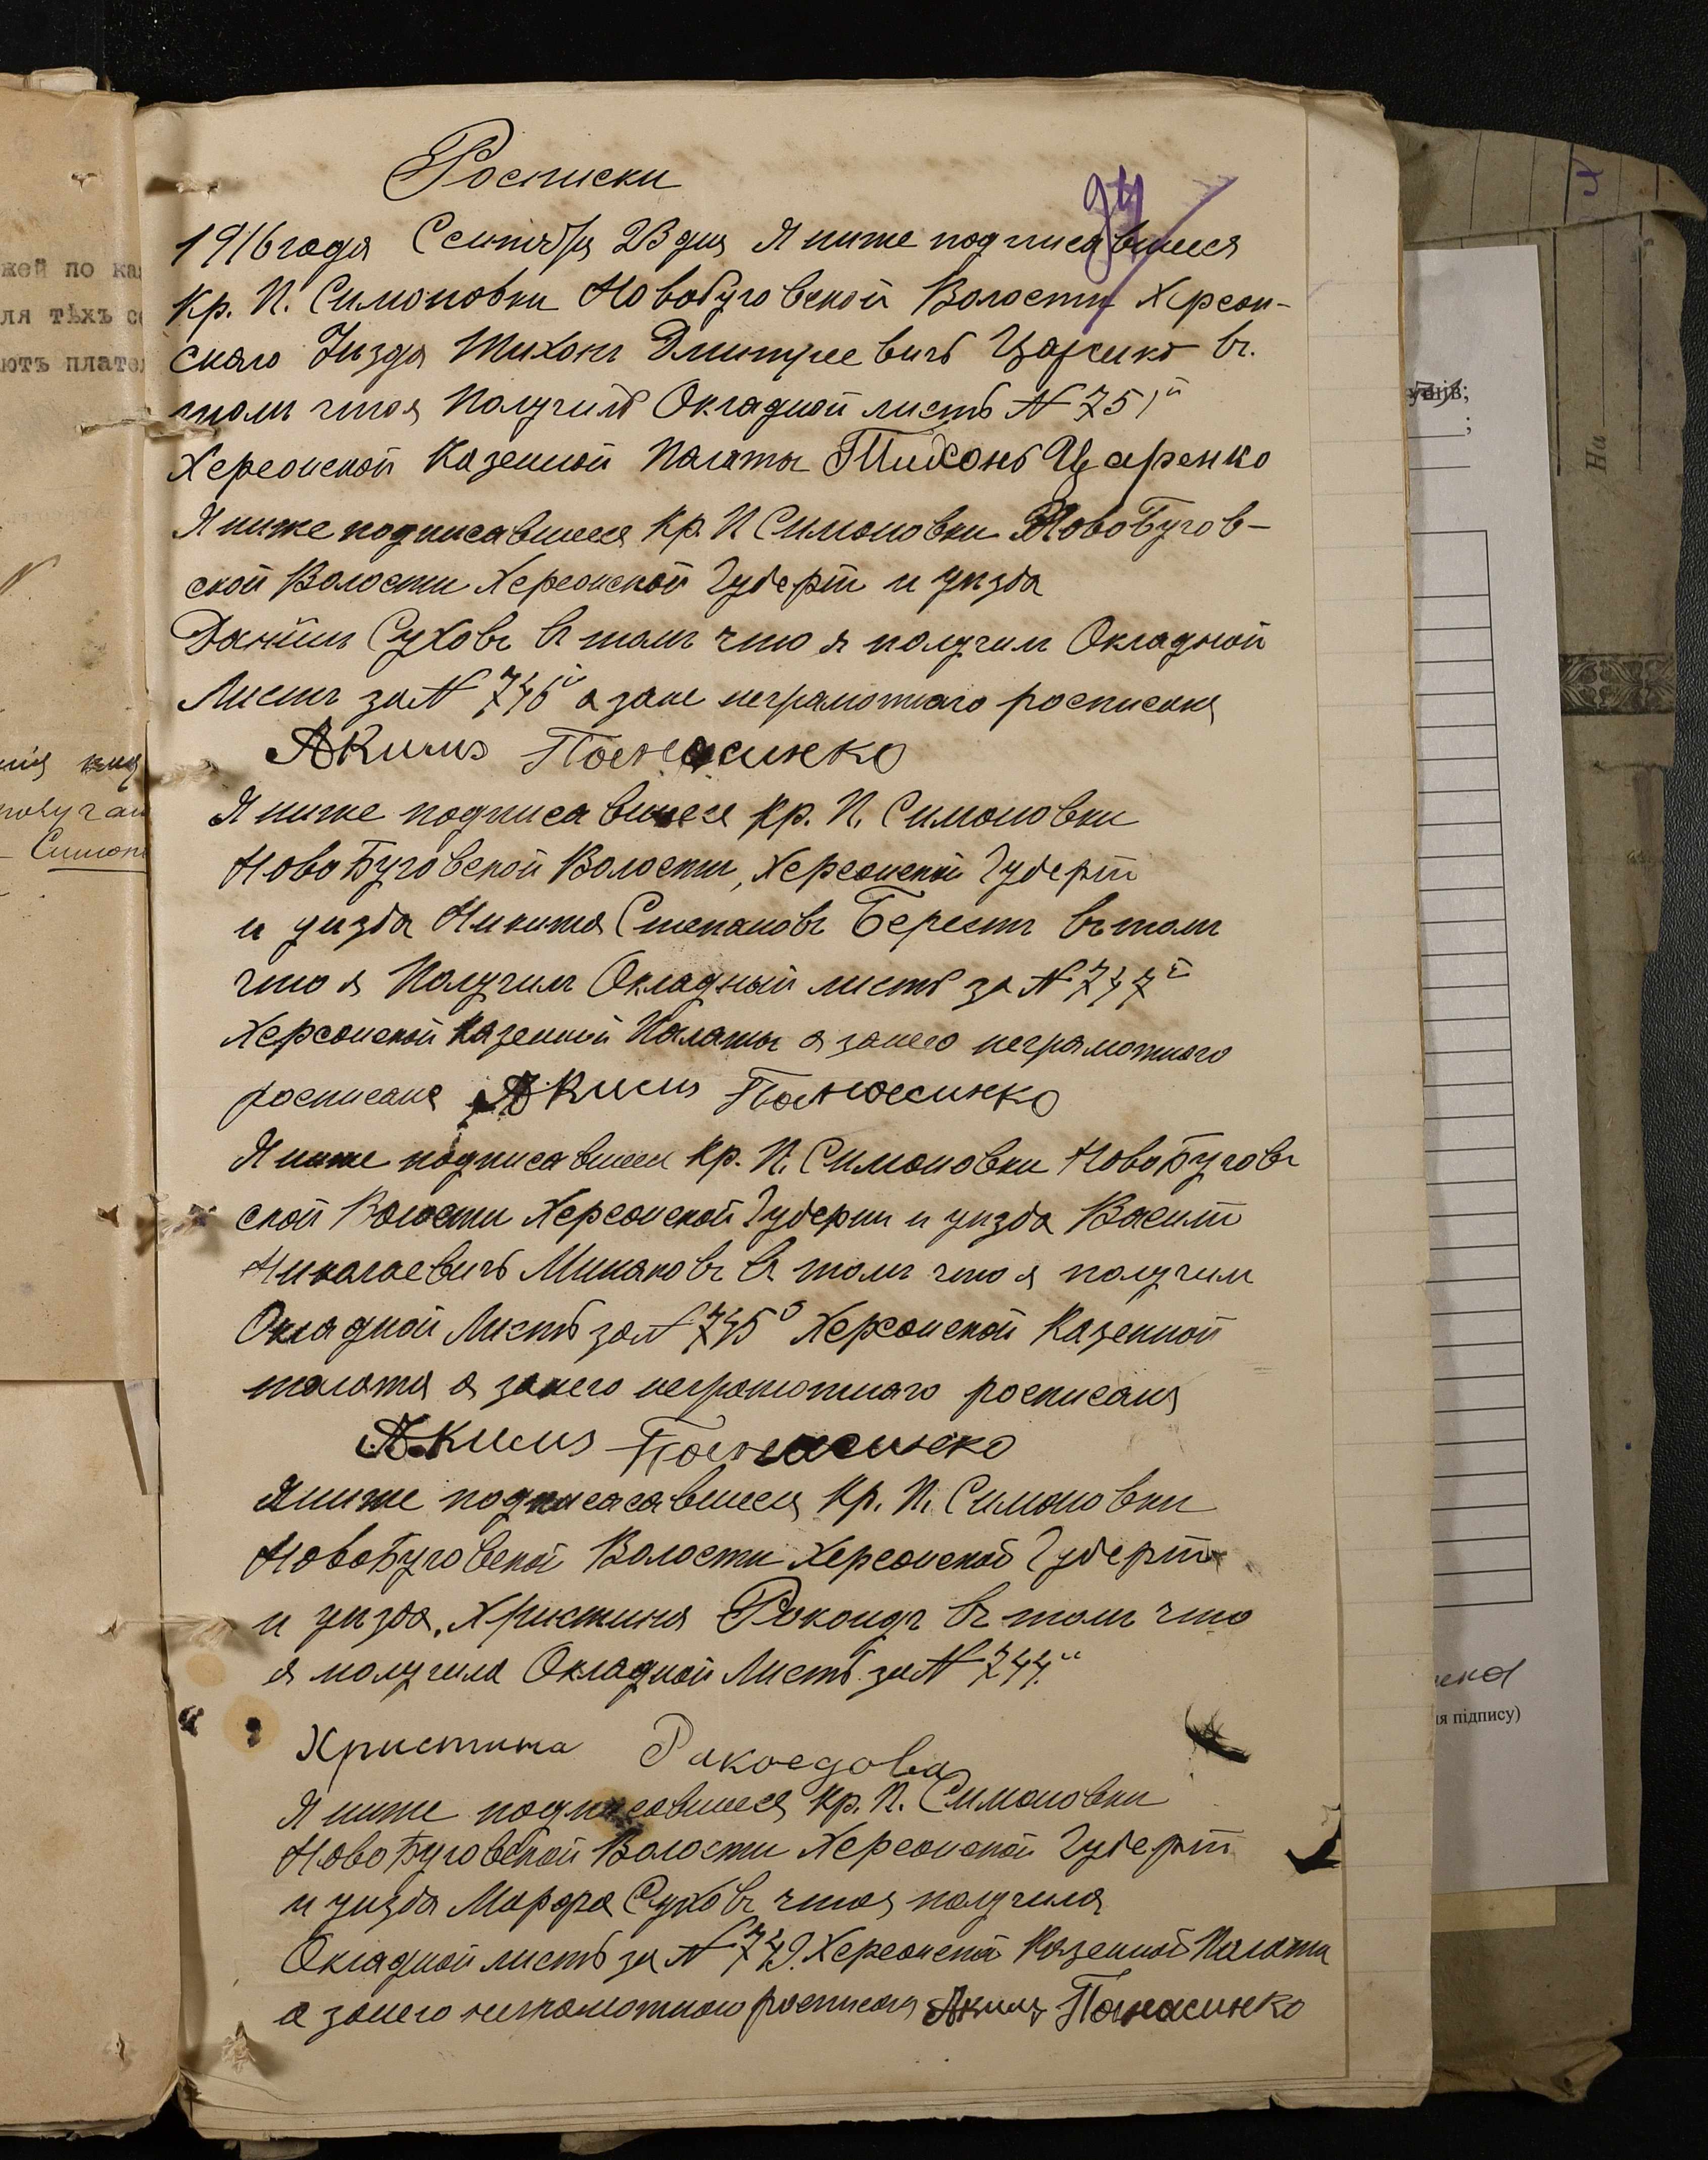 Росписки
94
1916 года Сентября 23 дня Я ниже подписавшися
Кр. П. Симоновки НовоБуговской Волости Херсон-
скаго Уизда Тихонъ Дмитриевичъ Царенко въ
томъ что я Получилъ Окладной листъ № 751й
Херсонской Казенной Палаты Тихонъ Царенко
Я ниже подписавшися Кр. П Симоновки НовоБугов-
ской Волости Херсонской Губерніи и уизда
Даніилъ Суховъ въ томъ что я получилъ Окладной
Листъ за № 746й а зане неграмотнаго росписался
Акимъ Понасинко
Я ниже подписавшися Кр. П. Симоновки
НовоБуговской Волости, Херсонской Губерніи
и уизда Никита Степановъ Берестъ въ томъ
что я Получилъ Окладный листъ за № 747й
Херсонской Казенной Палаты а занего неграмотного
росписался Акимъ Понасинко
Я ниже подписавшися Кр. П. Симоновки НовоБуговъ
ской Волости Херсонской Губерни и уизда Василій
Николаевичъ Минаковъ въ томъ что я получилъ
Окладной Листъ за № 745й Херсонской Казенной
палата а занего неграмотнаго росписался
Акимъ Понасинко
Я ниже подписасавшися Кр. П. Симоновки
НовоБуговской Волости Херсонской Губерніи
и уизда, Христина Ракоидъ въ томъ что
я получила Окладной Листъ за № 744й
Христина Ракоедова
Я ниже подписавшися Кр. П. Симоновки
НовоБуговской Волости Херсонской Губерніи
и уизда Марфа Суховъ что я получила
Окладной листъ за № 749. Херсонской Казенной Палати
а занего неграмотного росписался Акимъ Понасинко
жей по
ля тѣхъ
ютъ
На
я підпису)